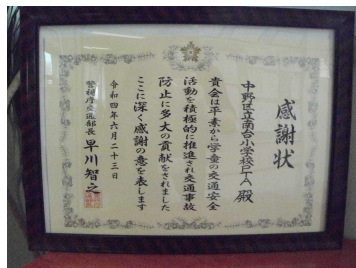 感謝状
中野区立南台小学校PTA殿
貴会は平素から学童の交通安全
活動を積極的に推進され交通事故
防止に多大の貢献をされました
ここに深く感謝の意を表します
令和四年六月二十三日
警視庁交通部長 早川智之